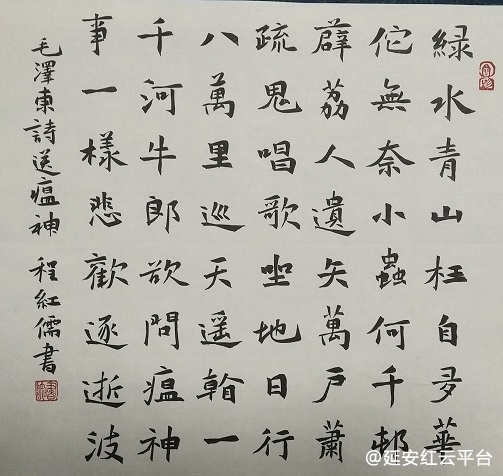 綠水青山枉自多華
佗無奈小蟲何千邨
薜荔人遺矢萬戶蕭
疏鬼唱歌坐地日行
八萬里巡天遥看一
千河牛郎欲問瘟神
事一樣悲歡逐逝波
毛澤東詩送瘟神 程紅儒書
@延安红云平台